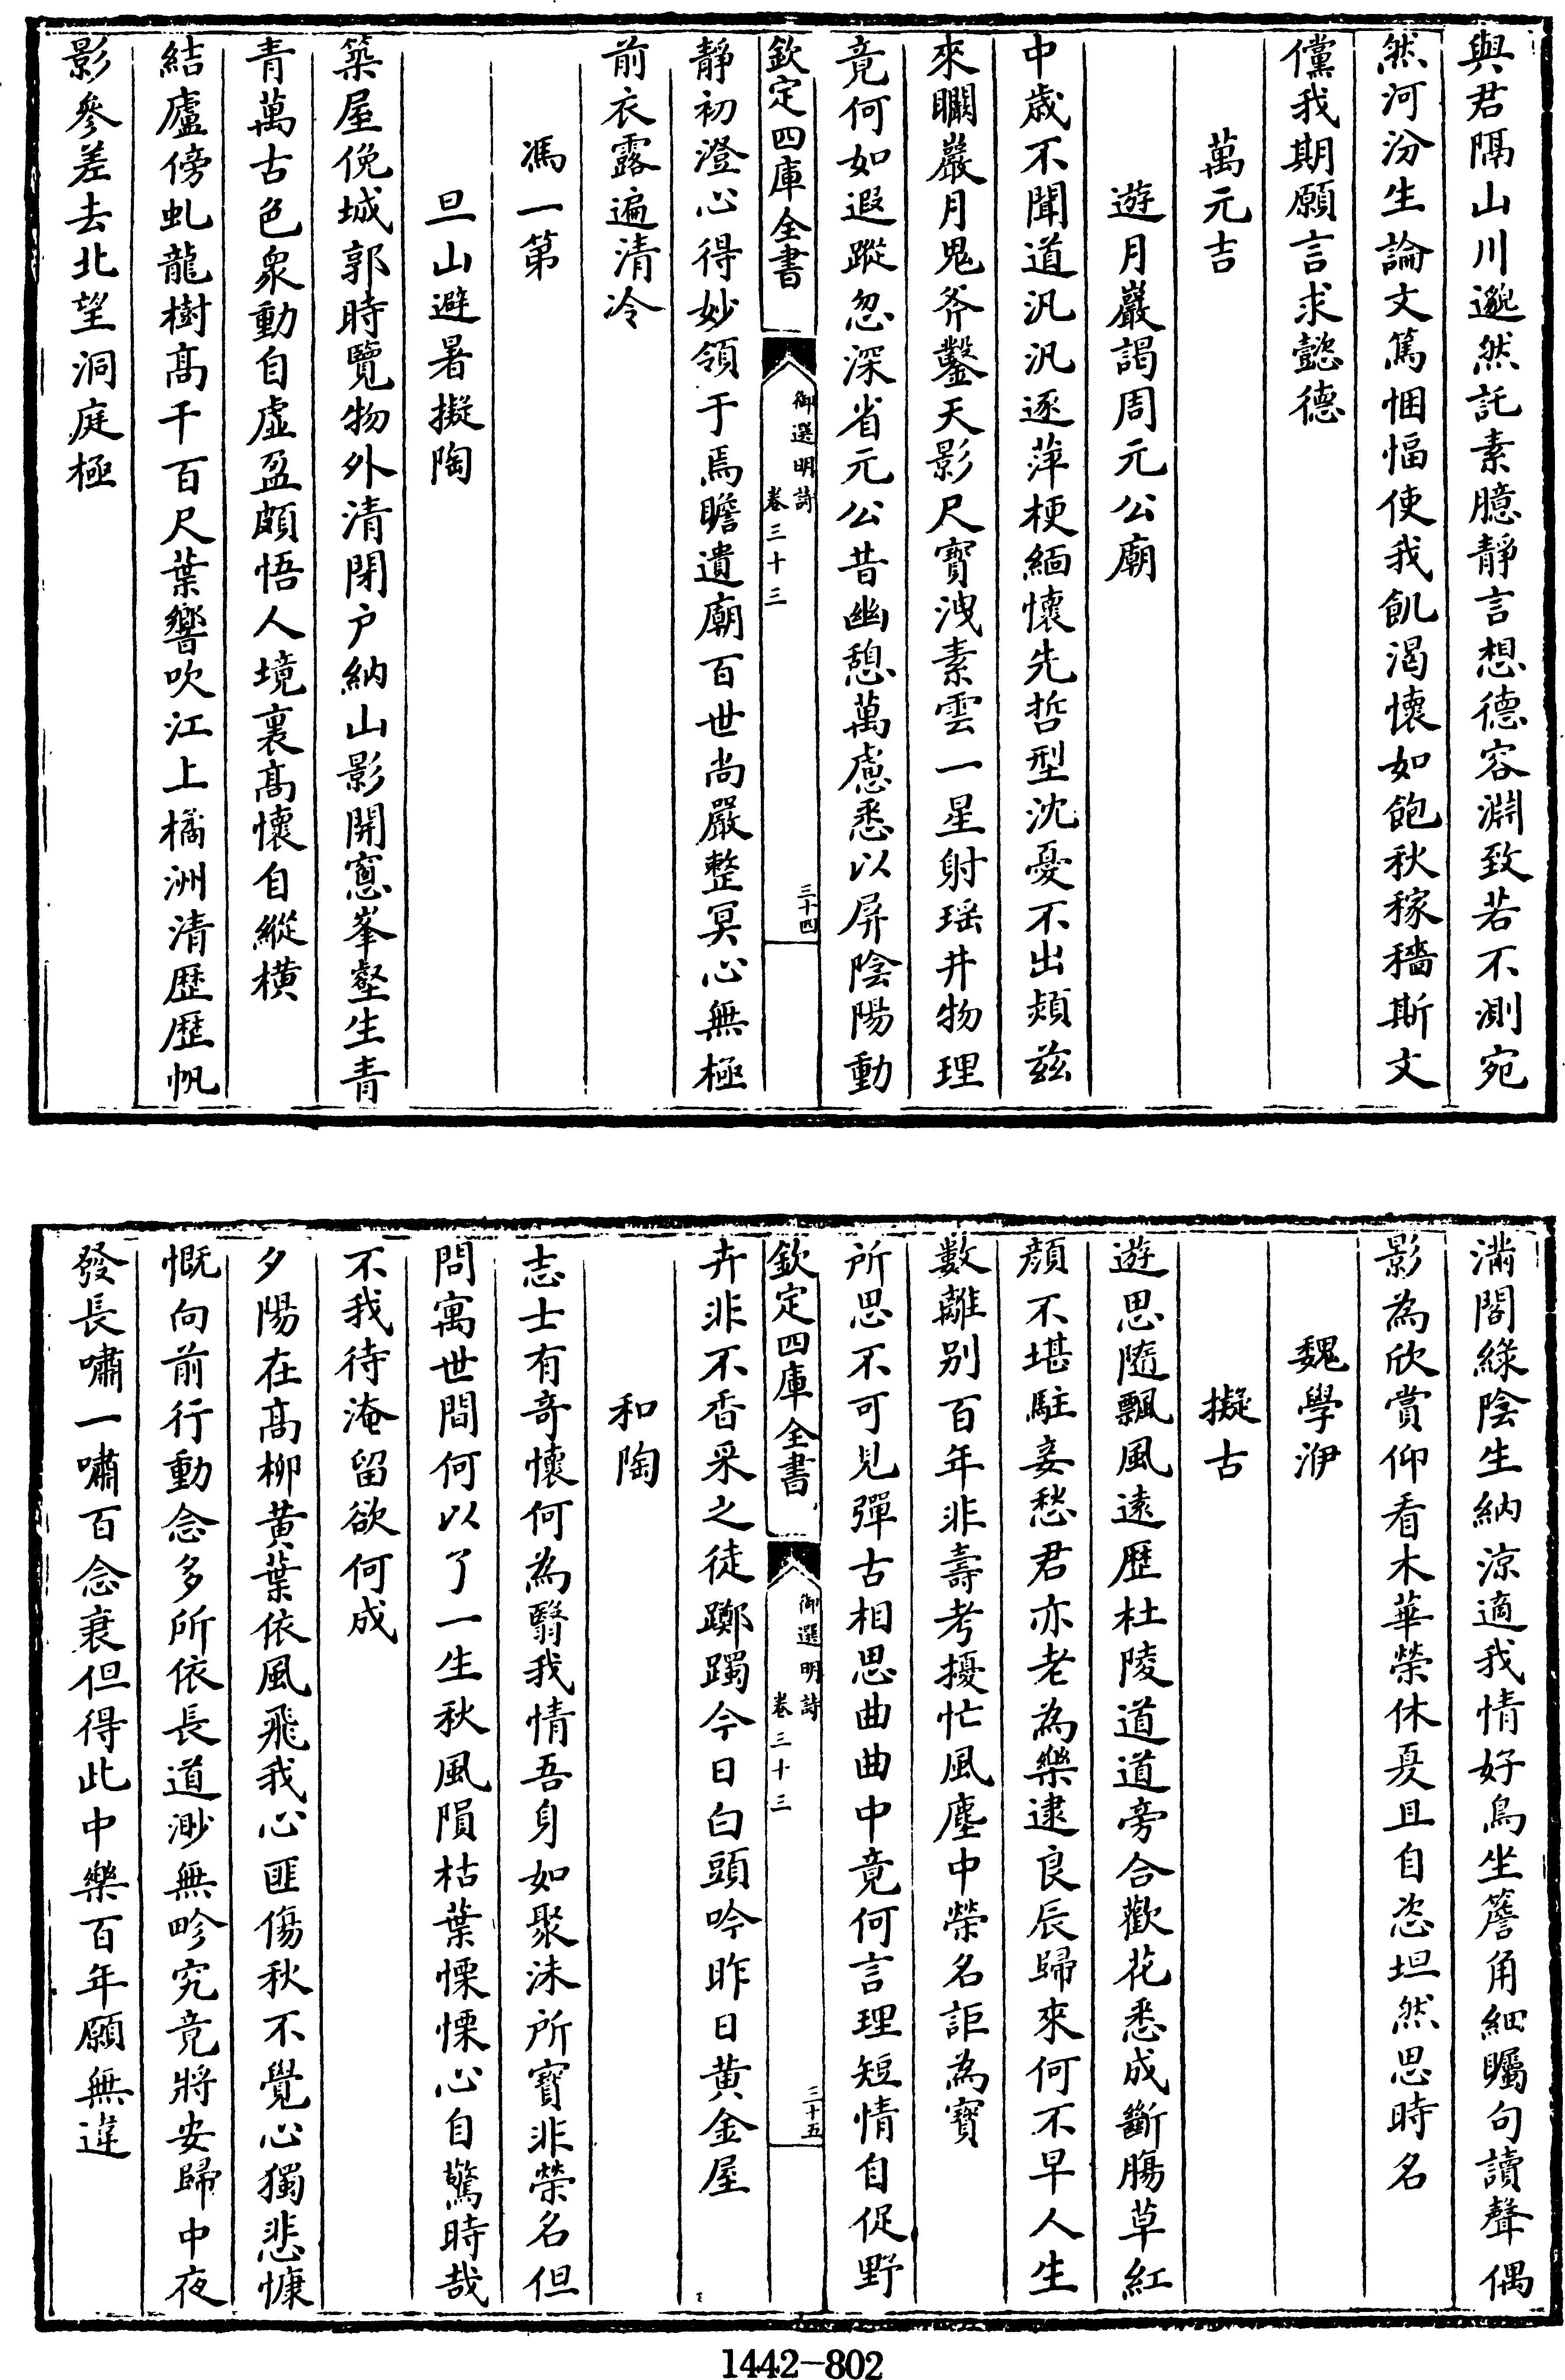 與君隔山川邈然託素臆靜言想德容淵致若不測宛
然河汾生論文篤悃愊使我飢渴懷如飽秋稼穡斯文
儻我期願言求懿德
萬元吉
遊月巖謁周元公廟
中歲不聞道汎汎逐萍梗緬懷先哲型沈憂不出熲兹
來瞷巖月鬼斧鑿天影尺寶洩素雲一星射瑶井物理
竟何如遐蹤忽深省元公昔幽憩萬慮悉以屏陰陽動
欽定四庫全書
御選明詩
卷三十三
三十四
靜初澄心得妙領于焉瞻遺廟百世尚嚴整冥心無極
前衣露遍清冷
馮一第
旦山避暑擬陶
築屋俛城郭時覽物外清閉户納山影開窻峯壑生青
青萬古色衆動自虛盈頗悟人境裏髙懷自縱横
結廬傍虬龍樹髙千百尺葉響吹江上橘洲清歴歴帆
影參差去北望洞庭極
滿閣綠陰生納涼適我情好鳥坐簷角細矚句讀聲偶
影為欣賞仰看木華榮休戛且自恣坦然思時名
魏學洢
擬古
遊思隨飄風遠歴杜陵道道旁合歡花悉成斷腸草紅
顔不堪駐妾愁君亦老為樂逮良辰歸來何不早人生
數離别百年非壽考擾忙風塵中榮名詎為寳
所思不可見彈古相思曲曲中竟何言理短情自促野
欽定四庫全書
御選明詩
卷三十三
三十五
卉非不香采之徒躑躅今日白頭吟昨日黄金屋
和陶
志士有竒懷何為翳我情吾身如聚沫所寳非榮名但
問寓世間何以了一生秋風隕枯葉慄慄心自驚時哉
不我待淹留欲何成
夕陽在髙柳黄葉依風飛我心匪傷秋不覺心獨悲慷
慨向前行動念多所依長道渺無畛究竟將安歸中夜
發長嘯一嘯百念衰但得此中樂百年願無違
1442-802